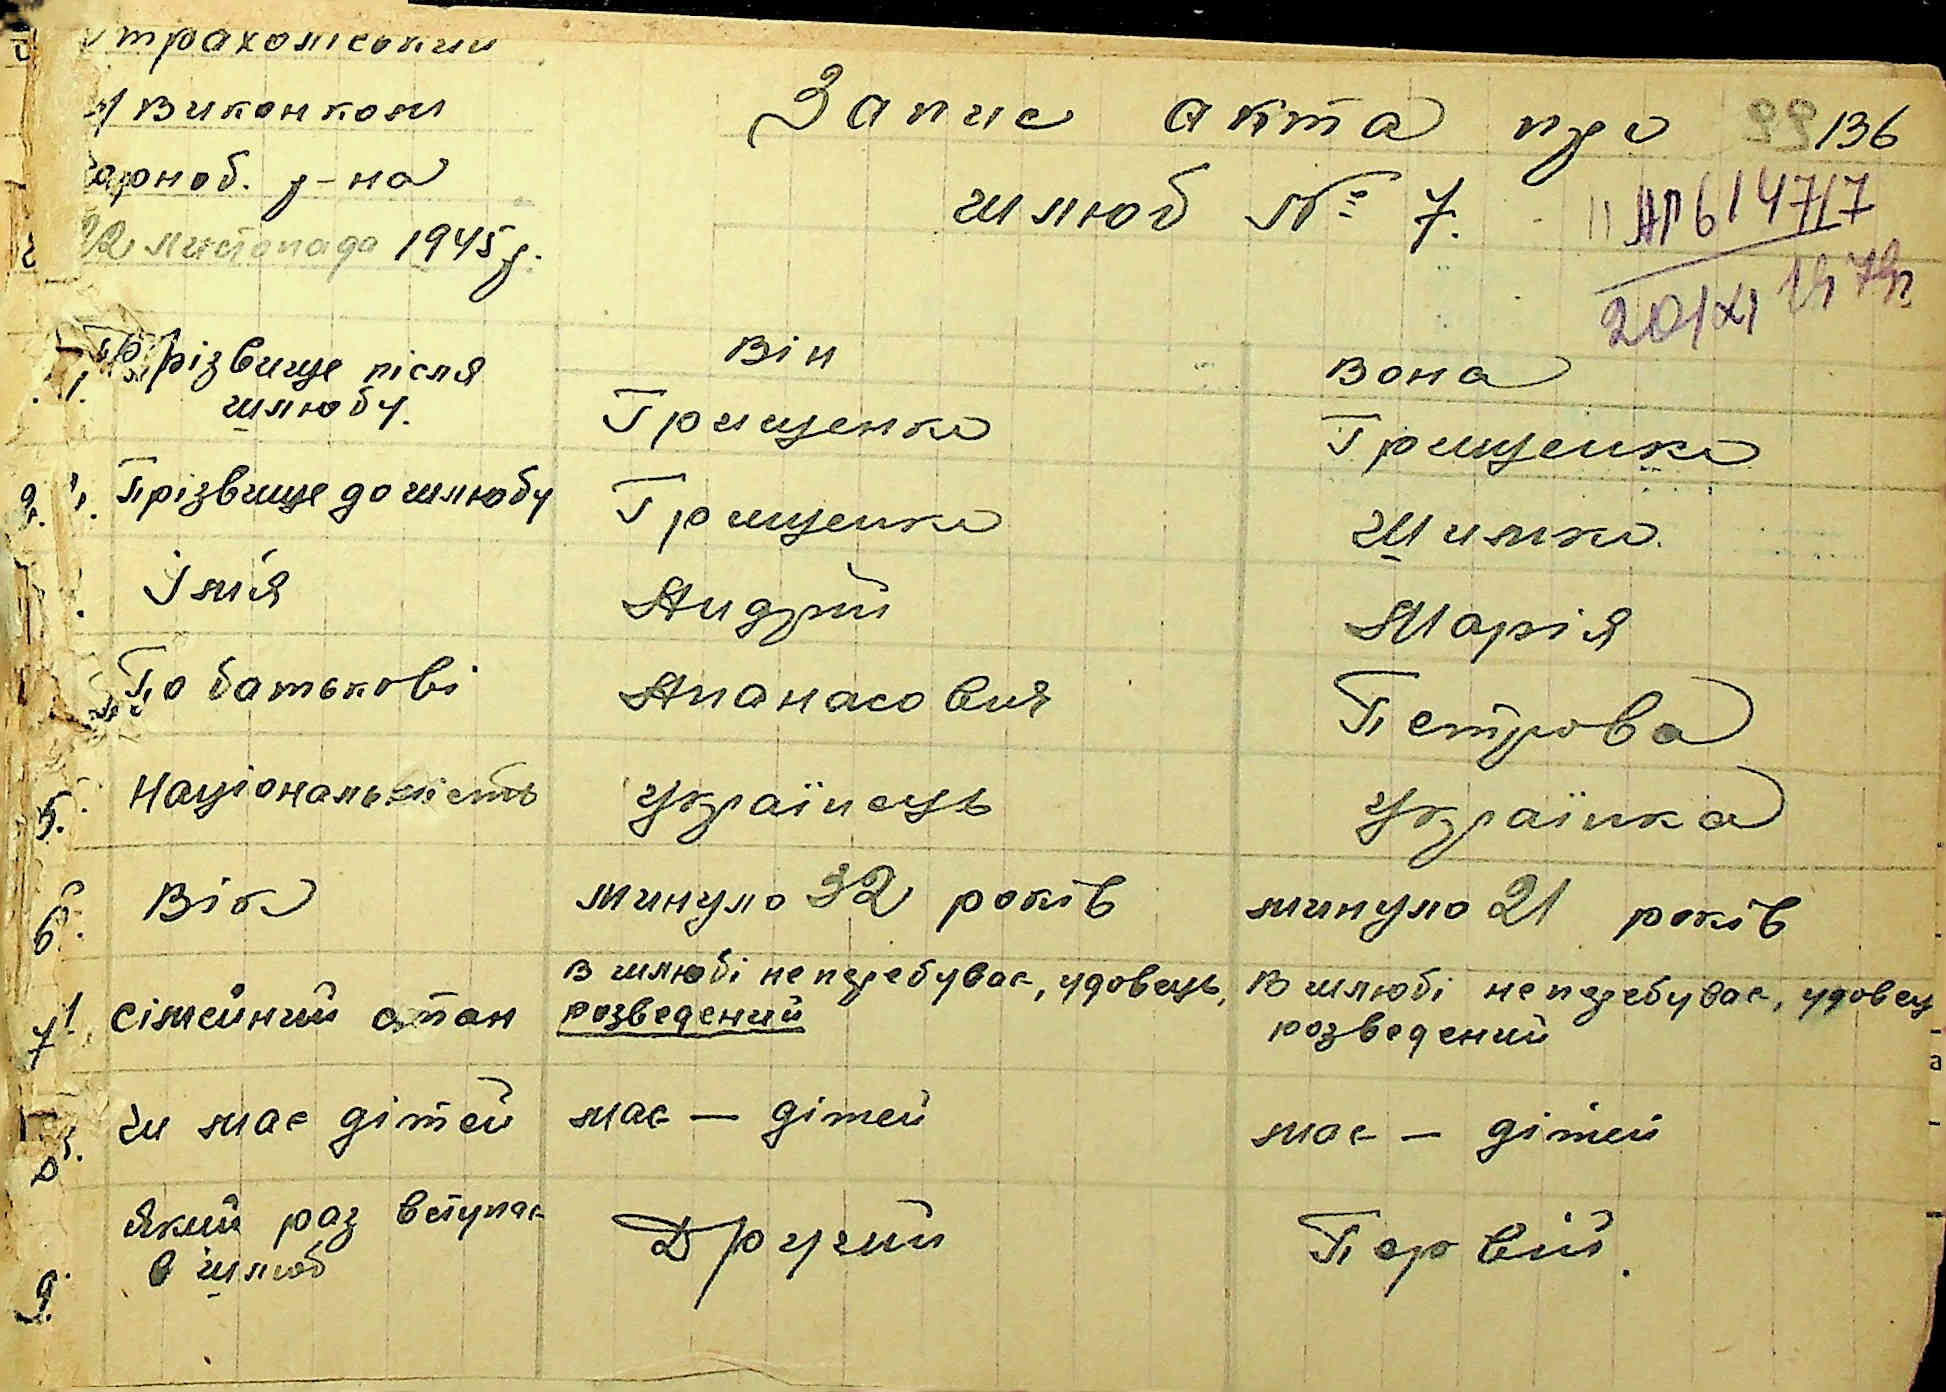 трахоліський
Виконком
арноб. р-на
22 листопада 1945 р.
Запис акта про
136
шлюб № 7.
АП 614717
20/XI
1. Прізвище після
шлюбу.
Він
Вона
Грищенко
Грищенко
2. Прізвище до шлюбу
Грищенко
Шимко.
Імя
Андрій
Марія
По батькові
Апанасовия
Петрова
5. Національність
Українець
Українка
6. Вік
минуло 32 років
минуло 21 років
7. Сімейний стан
В шлюбі не перебуває, удовець,
розведений
В шлюбі не перебуває, удовец
розведений
Чи має дітей
має — дітей
має — дітей
9. Який раз вступає
в шлюб
Другий
Первій.